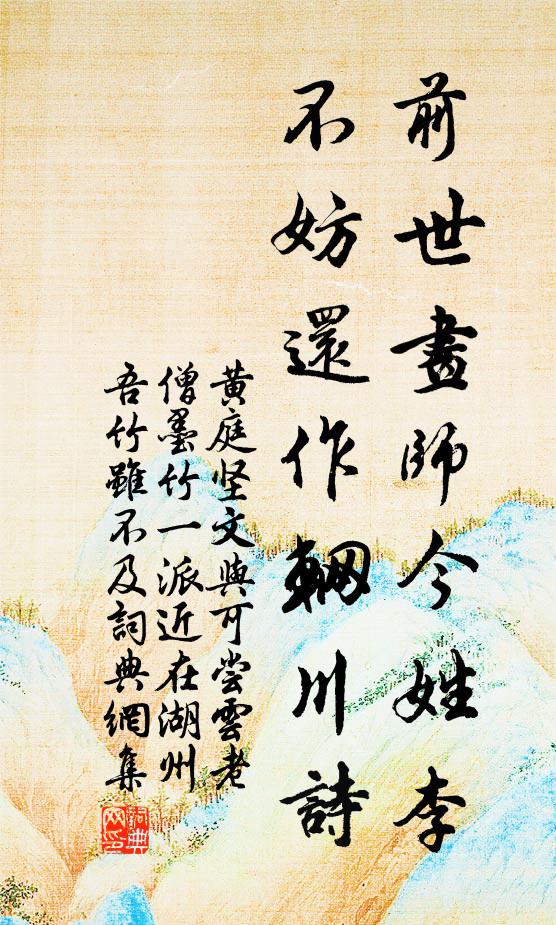 前世畫師今姓李
不妨還作輞川詩
黄庭坚文與可嘗雲老
僧墨竹一派近在湖州
吾竹雖不及詞典網集
詞典
网印